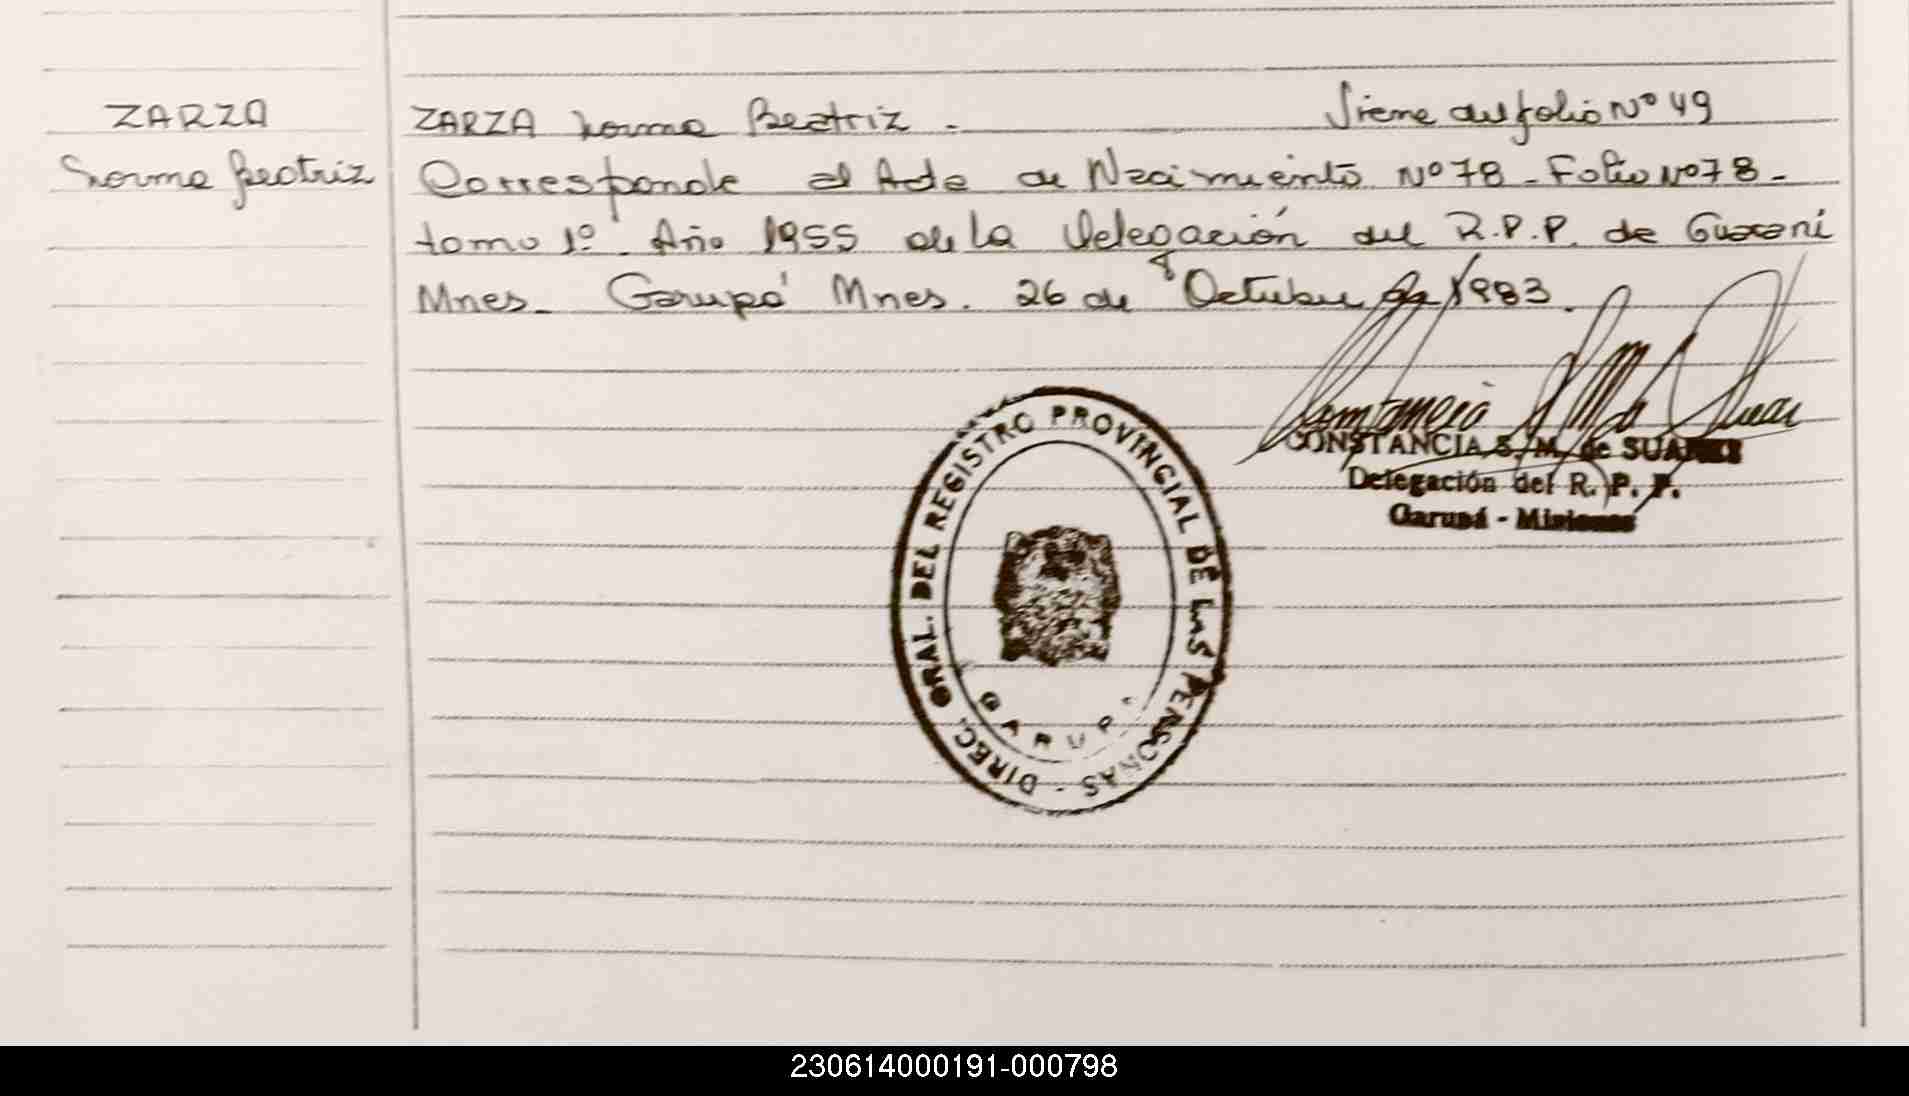 ZARZA
Norma Beatriz
ZARZA Norma Beatriz. Viene del folio Nº 49
Corresponde al Acta de Nacimiento Nº 78 - Folio Nº 78 -
tomo 1º. Año 1955 de la Delegación del R.P.P. de Guaraní
Mnes. Garupá Mnes. 26 de Octubre de 1983.
Constancia S M de Suarez
CONSTANCIA S. M. de SUAREZ
Delegación del R. P. P.
Garupá - Misiones
DIREC. GRAL. DEL REGISTRO PROVINCIAL DE LAS PERSONAS -
GARUP
230614000191-000798